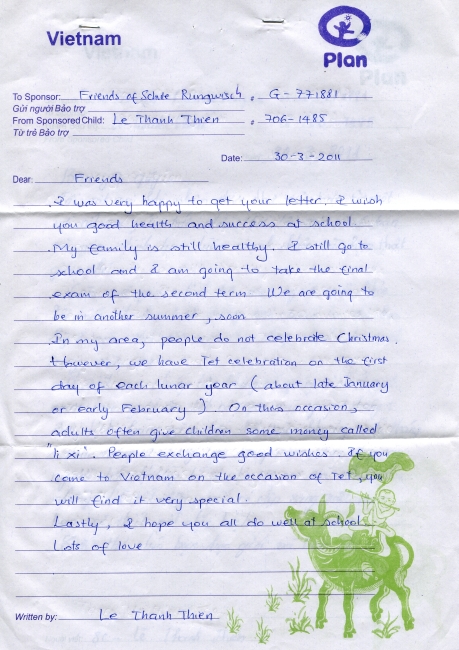 Vietnam
Plan
To Sponsor: Friends of Schule Rungwisch, G-771881
Gửi người Bảo trợ
From Sponsored Child: Le Thanh Thien, 706-1485
Từ trẻ Bảo trợ
Date: 30-3-2011
Dear: Friends
I was very happy to get your letter. I wish
you good health and success at school.
My family is still healthy. I still go to
school and I am going to take the final
exam of the second term. We are going to
be in another summer, soon
In my area, people do not celebrate Christmas.
However, we have Tet celebration on the first
day of each lunar year (about late January
or early February). On this occasion,
adults often give children some money called
"li xi". People exchange good wishes. If you
come to Vietnam on the occasion of Tet, you
will find it very special.
Lastly, I hope you all do well at school.
Lots of love
Written by: Le Thanh Thien